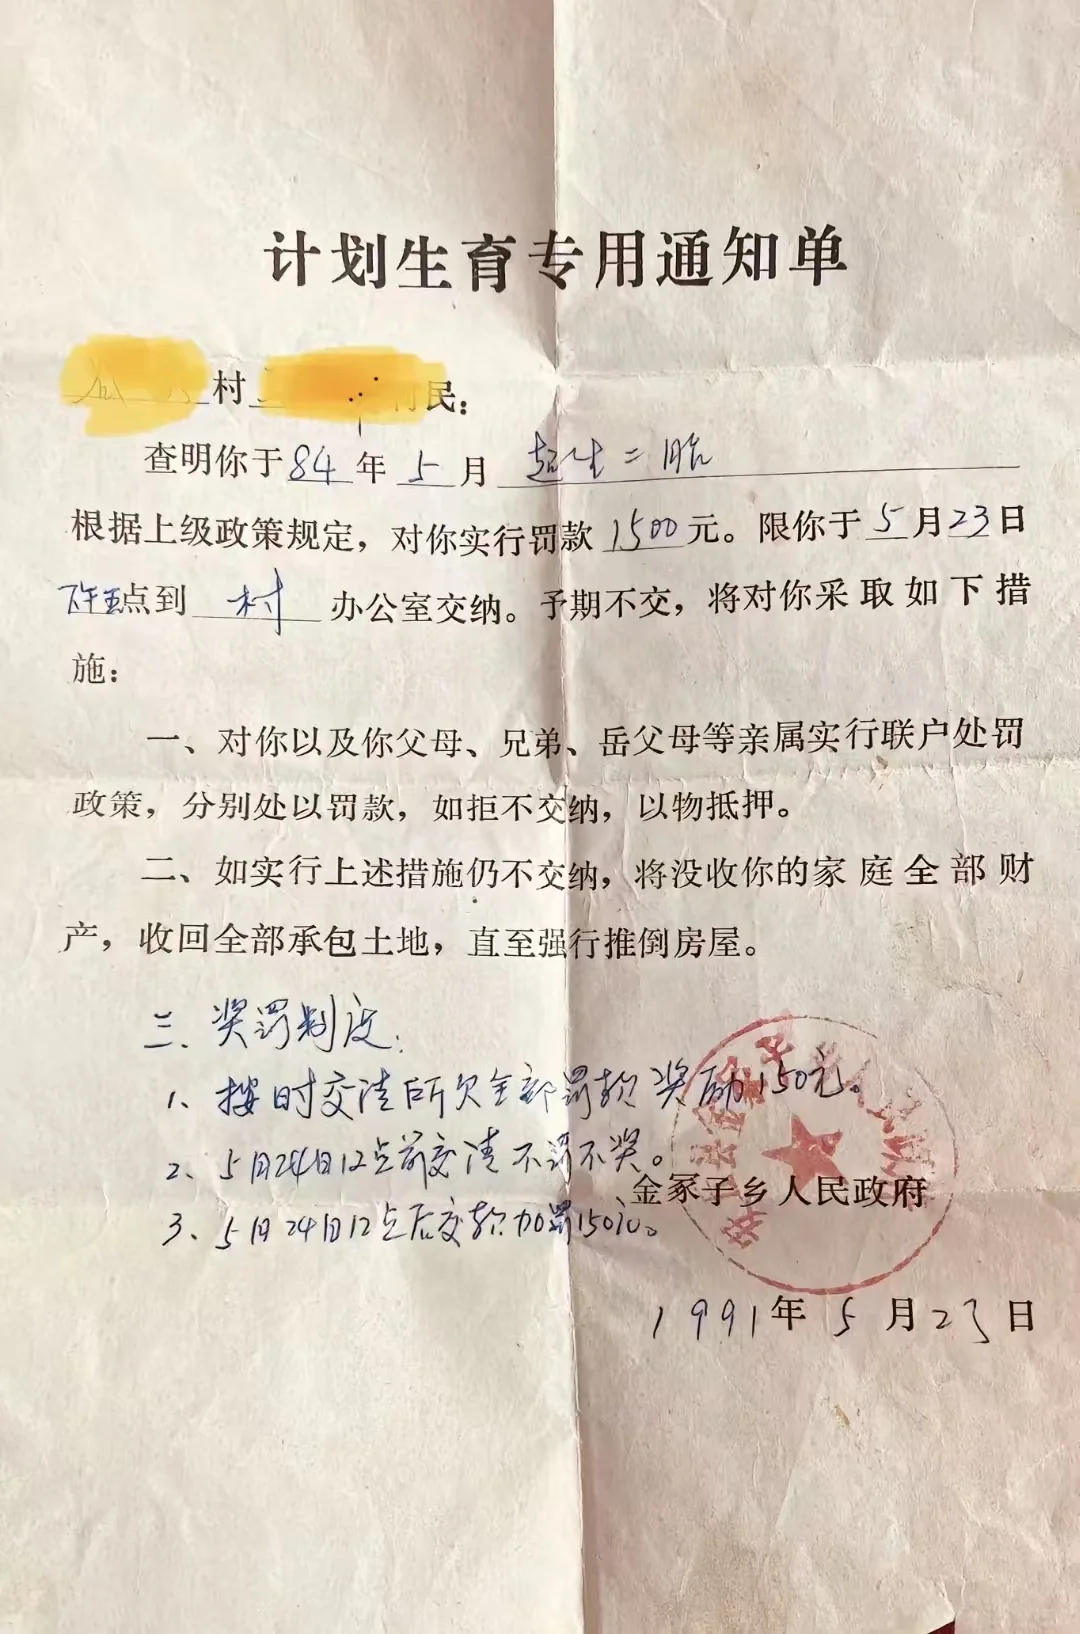 计划生育专用通知单
村 民：
查明你于84年5月 超生二胎
根据上级政策规定，对你实行罚款1500元。限你于5月23日
下午五点到 村 办公室交纳。予期不交，将对你采取如下措
施：
一、对你以及你父母、兄弟、岳父母等亲属实行联户处罚
政策，分别处以罚款，如拒不交纳，以物抵押。
二、如实行上述措施仍不交纳，将没收你的家庭全部财
产，收回全部承包土地，直至强行推倒房屋。
三、奖罚制度：
1、按时交清所欠全部罚款奖励150元。
2、5月24日12点前交清不罚不奖。
金冢子乡人民政府
3、5月24日12点后交款加罚150元。
1991年5月23日